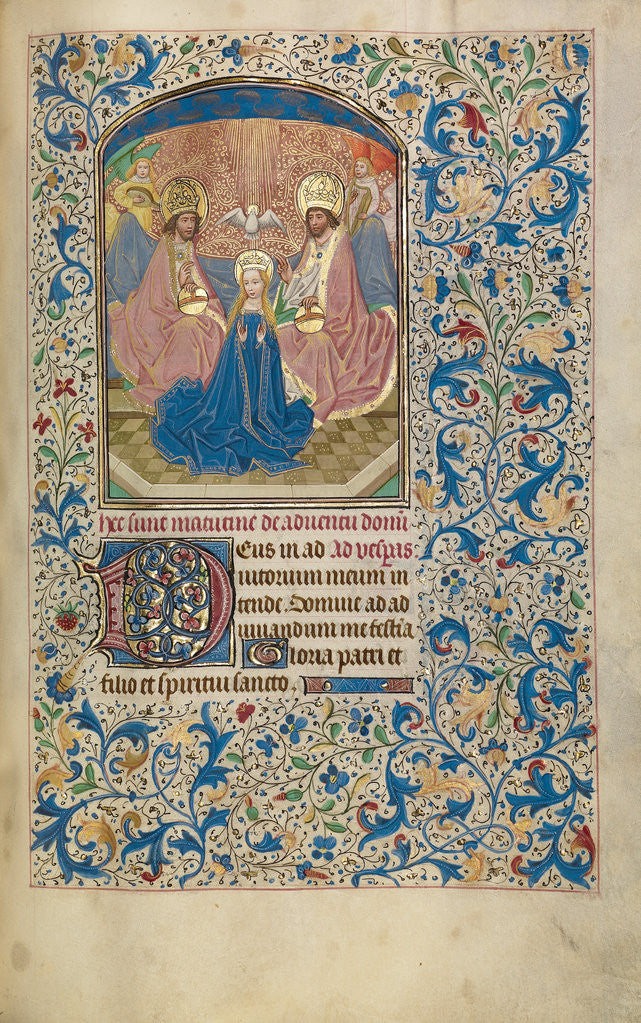 hec sunt matutine de aduentu domini
Deus in ad Ad vesperas:
iutorium meum in
tende. Domine ad ad
iuuandum me festia
Gloria patri et
filio et spiritui sancto.